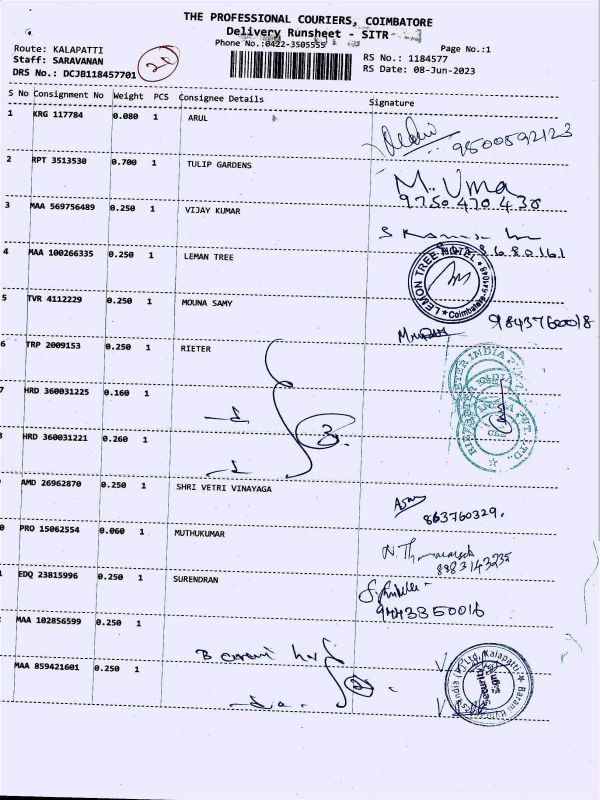 THE PROFESSIONAL COURIERS, COIMBATORE
Delivery Runsheet - SITR
Phone No.:0422-3505555
Page No.:1
Route: KALAPATTI
Staff: SARAVANAN
DRS No.: DCJB118457701
20
RS No.: 1184577
RS Date: 08-Jun-2023
S No Consignment No Weight PCS Consignee Details Signature
1 KRG 117784 0.080 1 ARUL
9500592123
2 RPT 3513530 0.700 1 TULIP GARDENS
M. Uma
9750 470 430
3 MAA 569756489 0.250 1 VIJAY KUMAR
4 MAA 100266335 0.250 1 LEMAN TREE
LEMON TREE HOTEL Coimbatore
5 TVR 4112229 0.250 1 MOUNA SAMY
9843760018
6 TRP 2009153 0.250 1 RIETER
7 HRD 360031225 0.160 1
3
8 HRD 360031221 0.260 1
RIETER INDIA PVT. LTD.
AMD 26962870 0.250 1 SHRI VETRI VINAYAGA
863760329.
0 PRO 15062554 0.060 1 MUTHUKUMAR
8883143235
1 EDQ 23815996 0.250 1 SURENDRAN
9443850016
MAA 102856599 0.250 1
MAA 859421601 0.250 1
2
Kalapatti